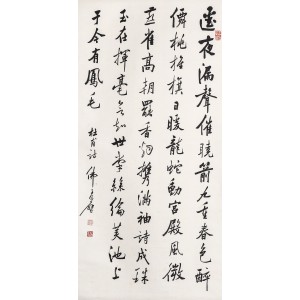 夜漏聲催曉箭九重春色醉
僊桃旌旗日暖龍蛇動宮殿風微
燕雀高朝罷香烟攜滿袖詩成珠
玉在揮毫欲知世掌絲綸美池上
于今有鳳毛
杜甫詩